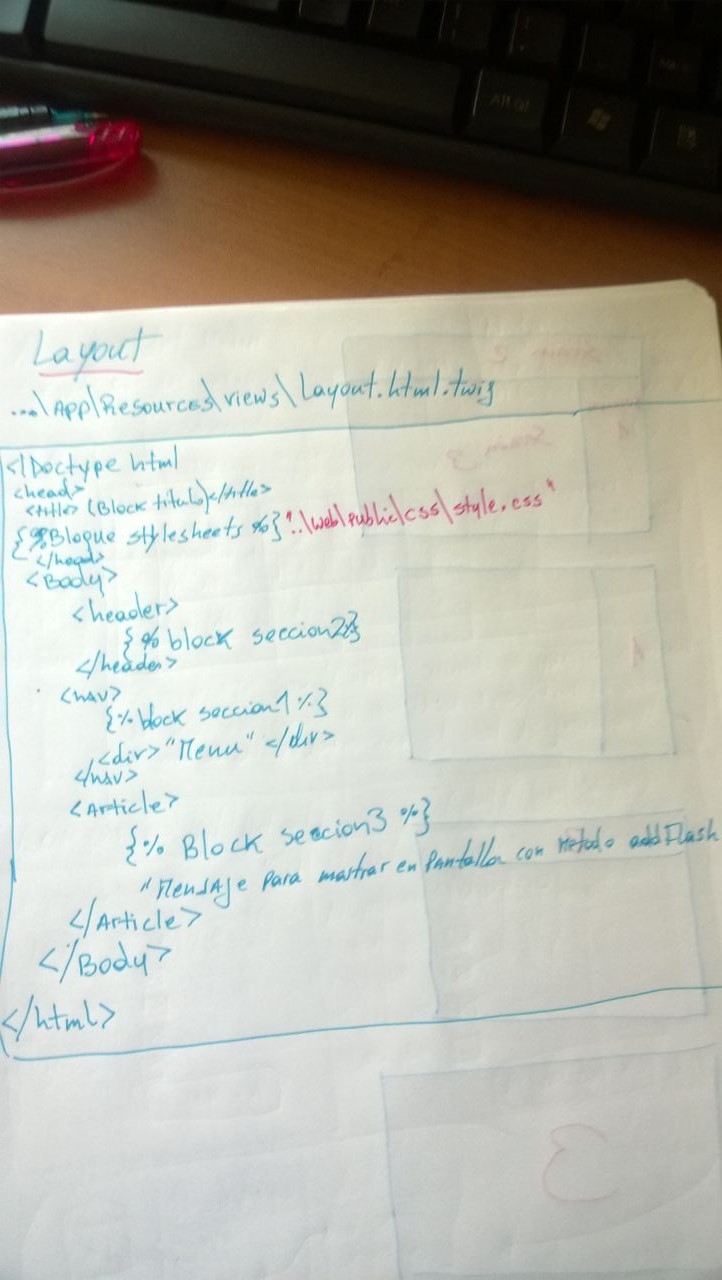 Alt Gr
Layout
...\App\Resources\views\Layout.html.twig
<!Doctype html
<head>
<title> (Block titulo)</title>
{%Bloque stylesheets %}"..\web\public\css\style.css"
</head>
<Body>
<header>
{% block seccion2%}
</header>
<nav>
{% block seccion1 %}
<div>"Menu" </div>
</nav>
<Article>
{% Block seccion3 %}
"Mensaje para mostrar en pantalla con metodo addFlash
</Article>
</Body>
</html>
3